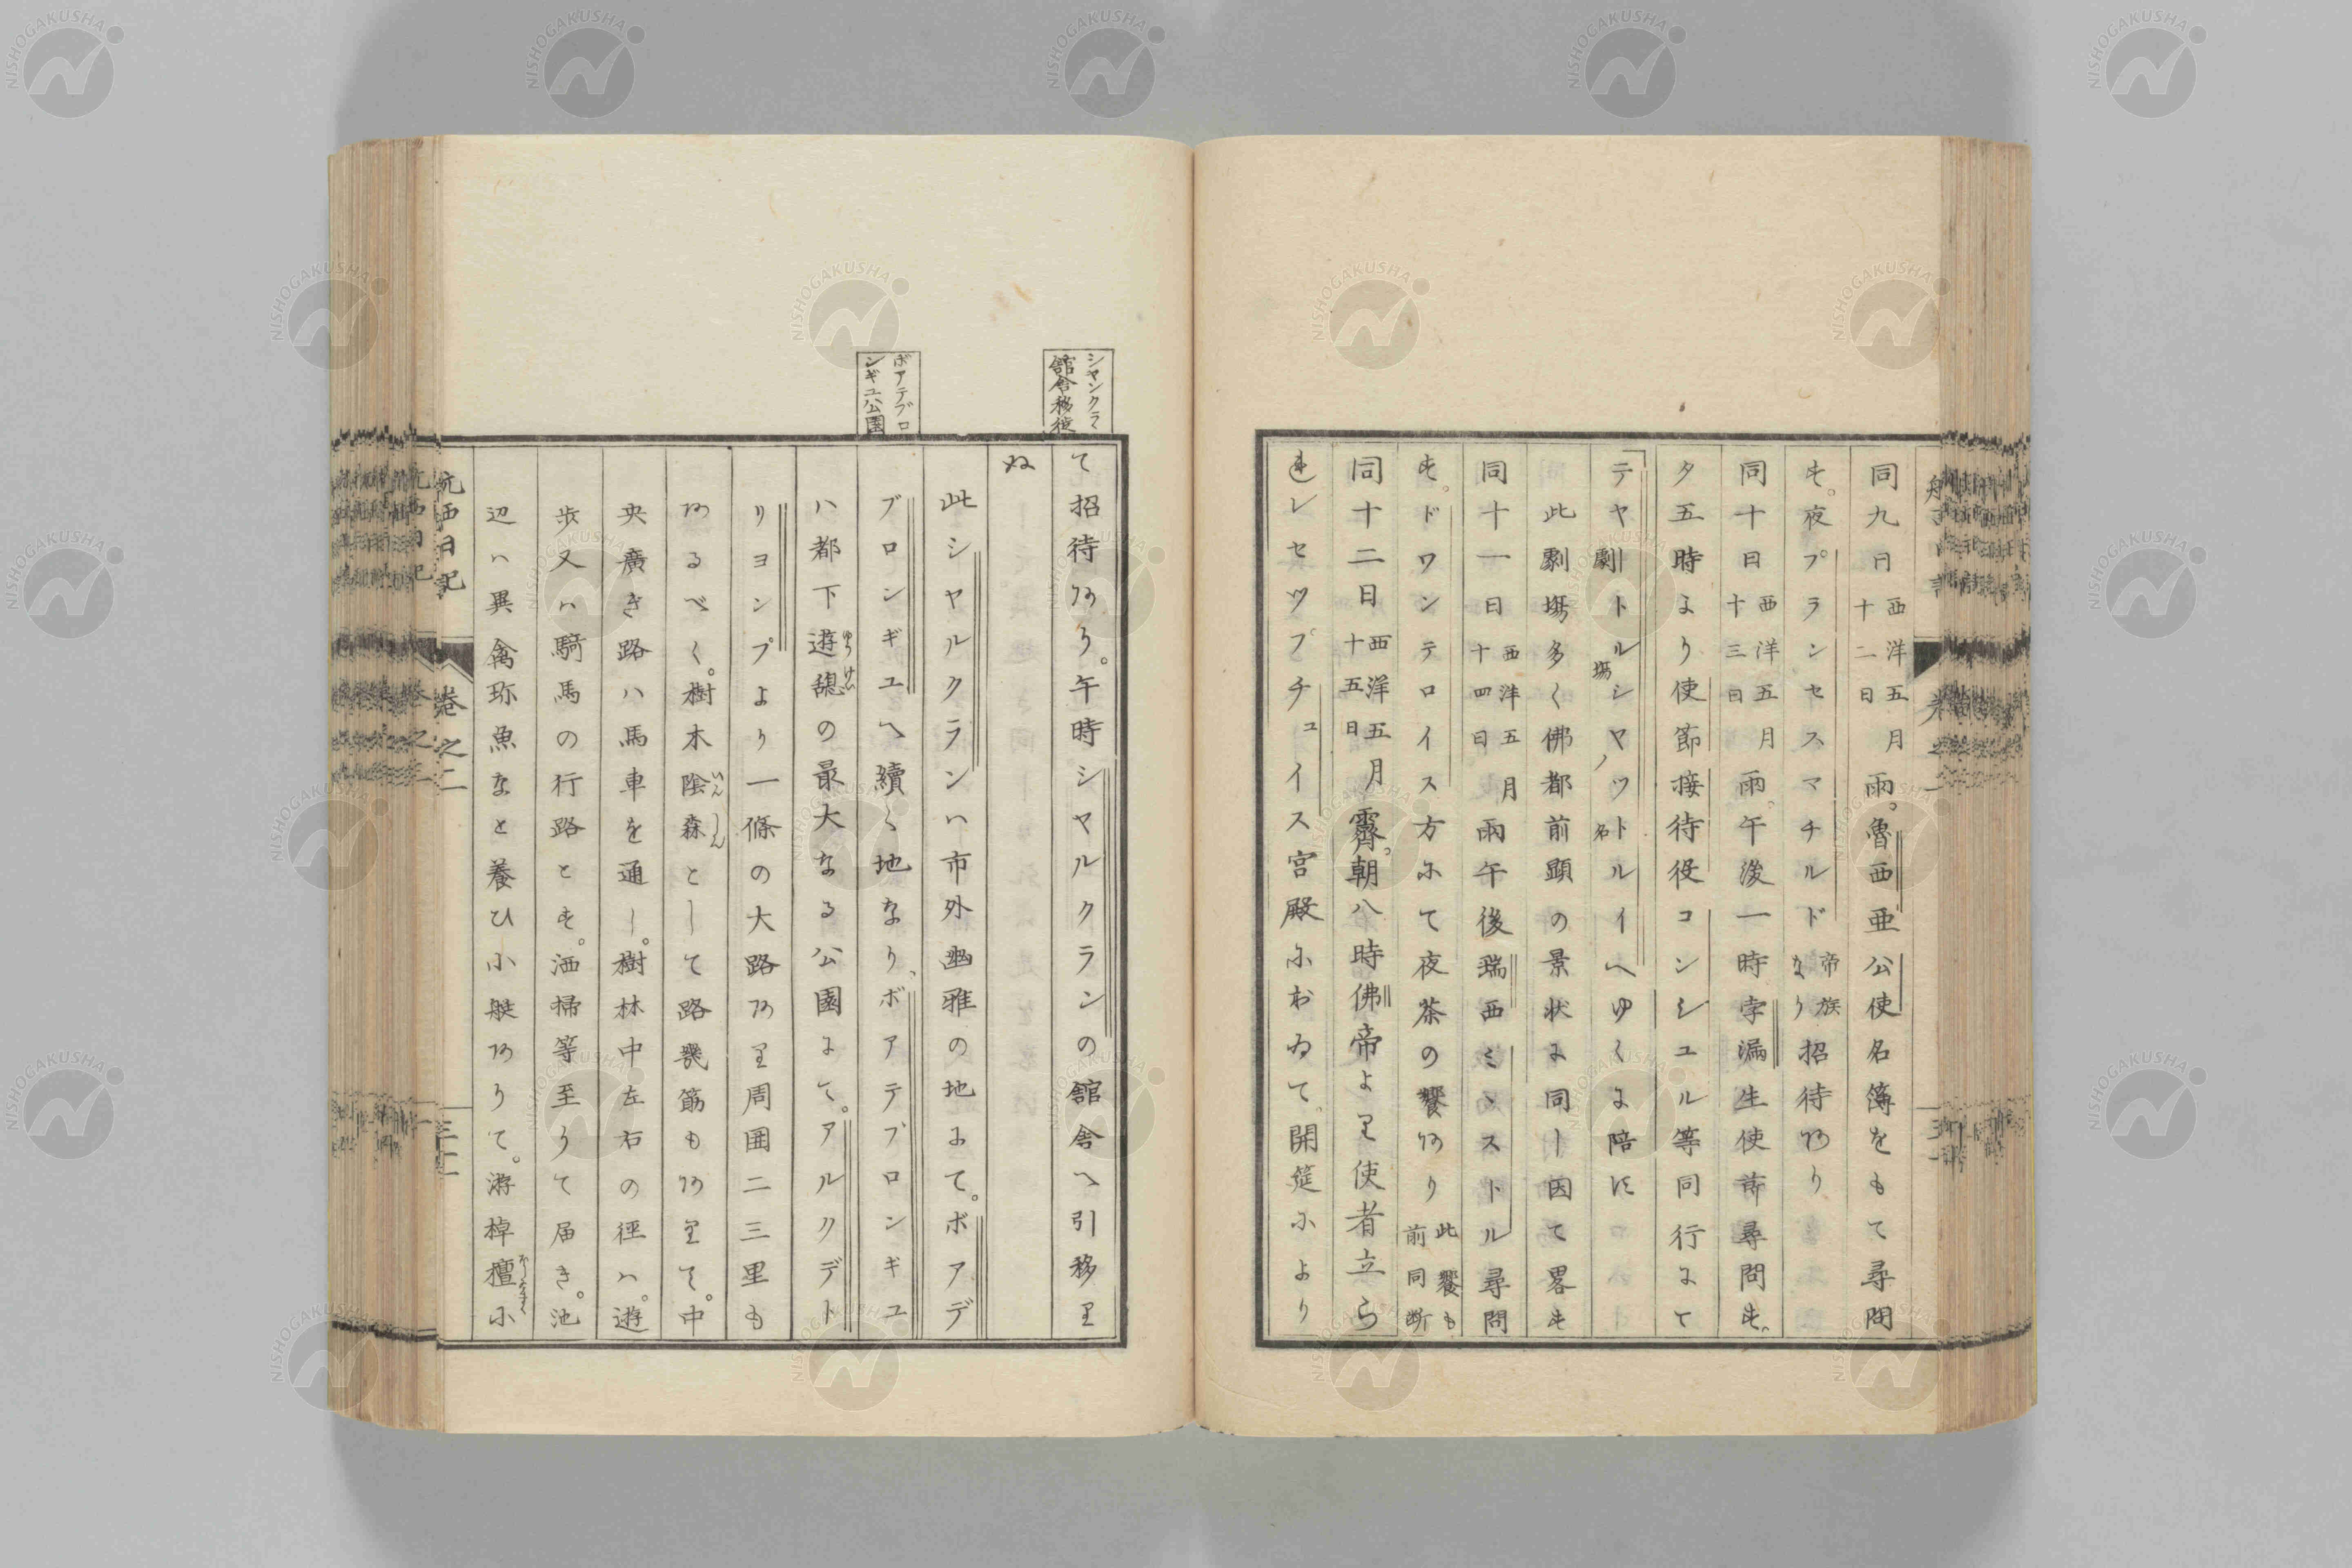 同九日西洋五月十二日雨。魯西亜公使名簿をもて尋問
す。夜プランセスマチルド帝族なり招待あり
同十日西洋五月十三日雨。午後一時孛漏生使節尋問す。
夕五時より使節接待役コンシユル等同行にて
テヤトルシヤツトルイ劇場ノ名へゆくに陪に
此劇場多く佛都前顕の景状に同し因て畧す
同十一日西洋五月十四日雨午後瑞西ミニストル尋問
す。ドワンテロイス方にて夜茶の饗あり此饗も前同断
同十二日西洋五月十五日霽。朝八時佛帝より使者立ら
れレセツプチユイス宮殿におゐて。開筵により
シヤンクラン舘舎移徙
て招待あり。午時シヤルクランの舘舎へ引移り
ぬ
此シヤルクランハ市外幽雅の地にて。ボアデ
ボアテブロンギユ公園
ブロンギユへ續く地なり、ボアテブロンギユ
ハ都下遊憩の最大なる公園にて。アルクデト
ゆうけい
リヨンプより一條の大路あり周囲二三里も
あるべく。樹木陰森として路幾筋もありて。中
いんしん
央廣き路ハ馬車を通し。樹林中左右の徑ハ。遊
歩又ハ騎馬の行路とす。洒掃等至りて届き。池
辺ハ異禽珎魚なと養ひ小艇ありて。游棹擅に
航西日記
巻之二
三十二